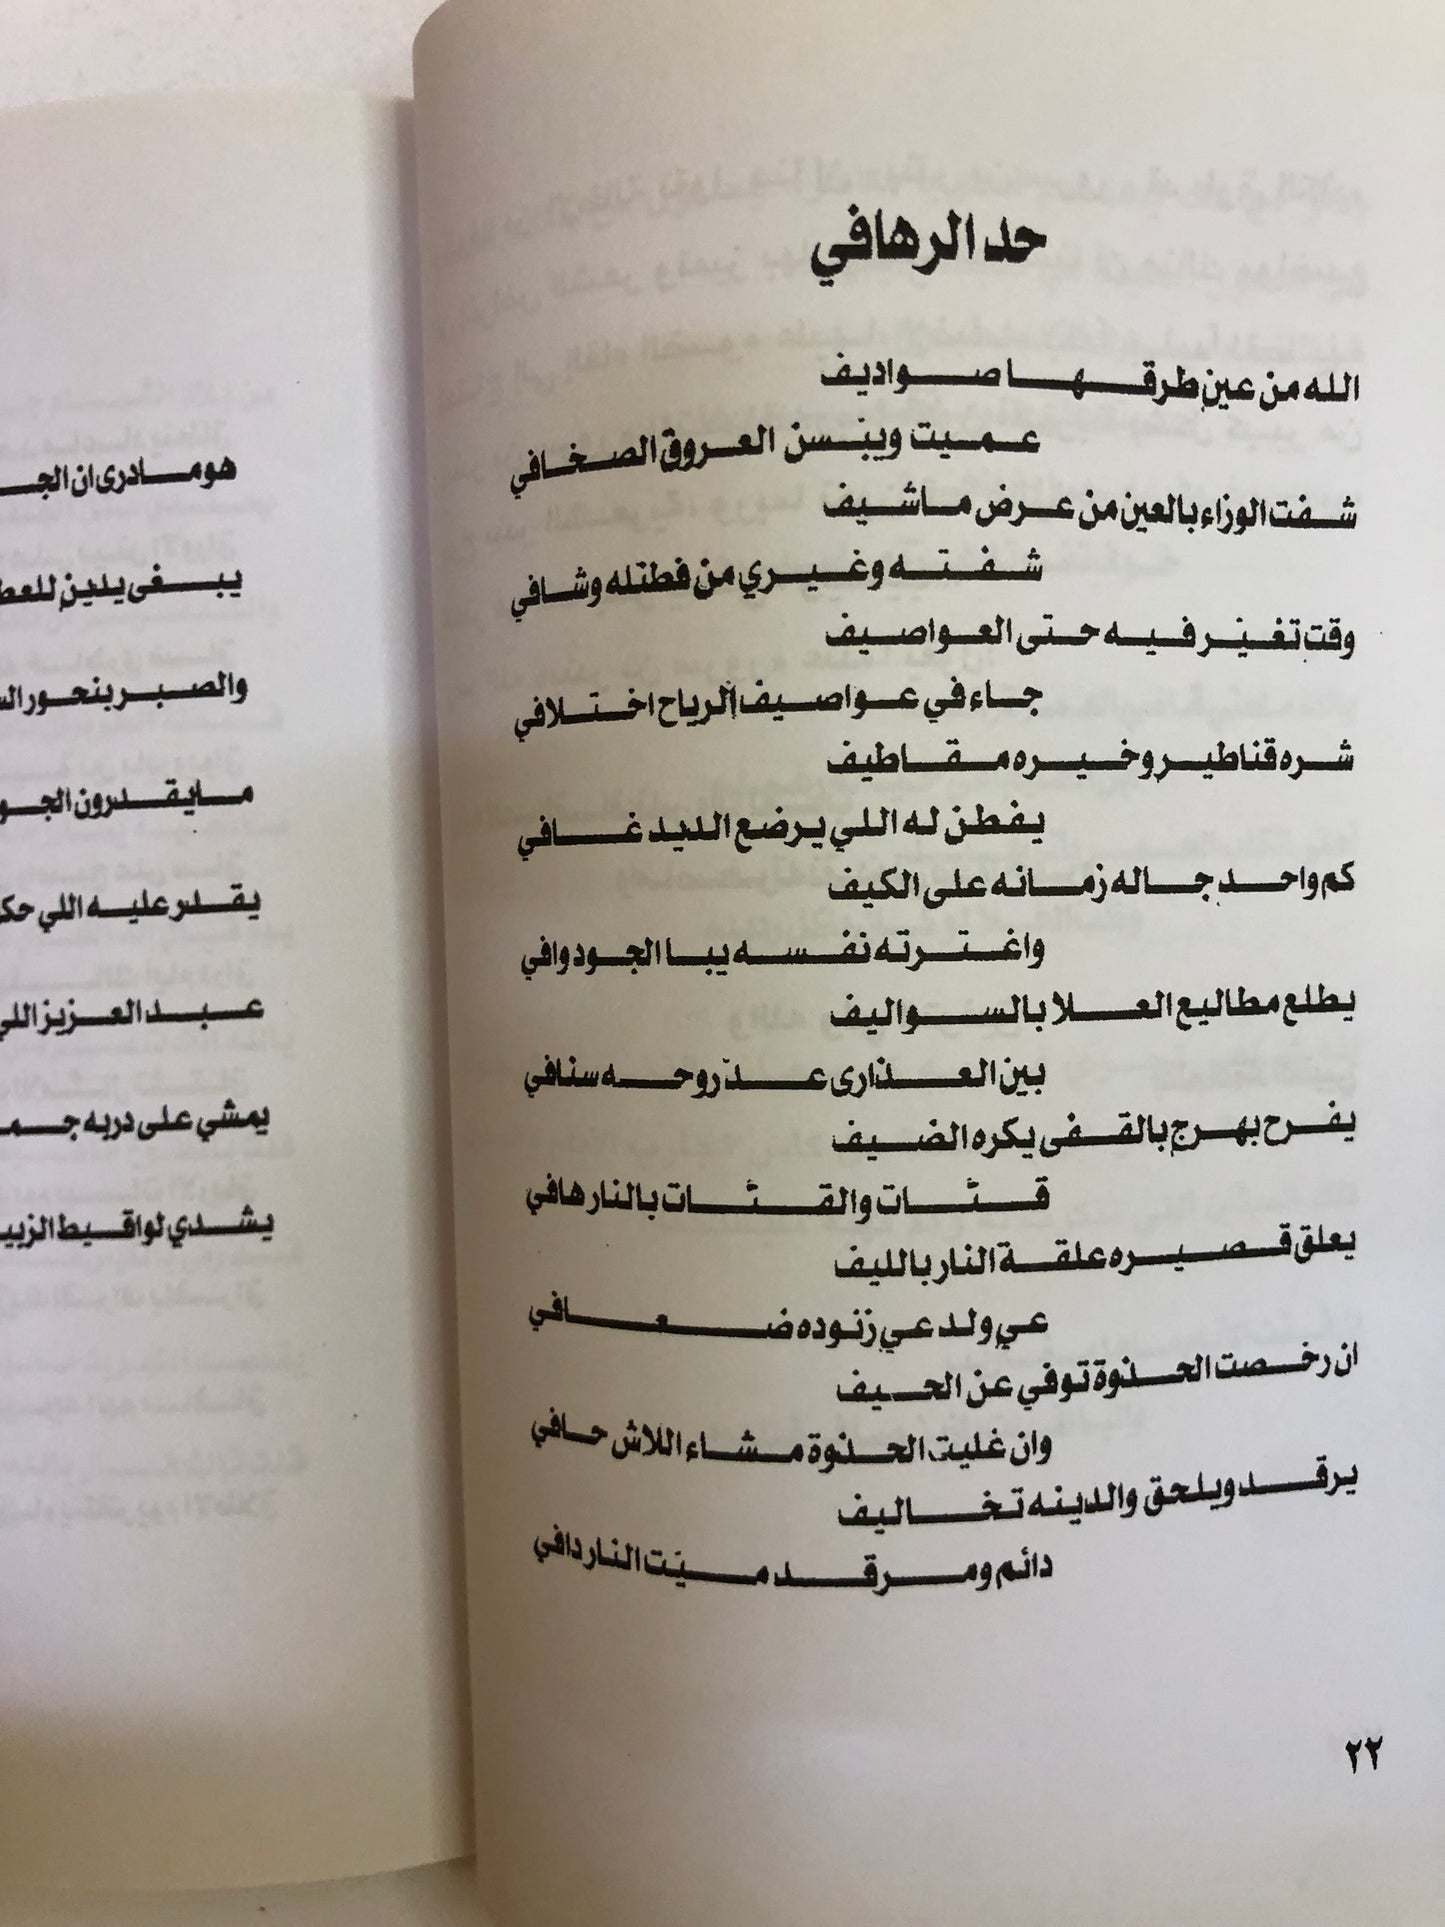 حد الرهافي
الله من عينٍ طرقها صواديف
عميت ويبسن العروق الصخافي
شفت الوزاء بالعين من عرض ماشيف
شفته وغيري من فطنله وشافي
وقتٍ تغيّر فيه حتى العواصيف
جاء في عواصيف الرياح اختلافي
شره قناطيرٍ وخيره مقاطيف
يفطن له اللي يرضع الديد غافي
كم واحدٍ جاله زمانه على الكيف
واغترته نفسه يبا الجود وافي
يطلع مطاليع العلا بالسواليف
بين العذارى عدّ روحه سنافي
يفرح بهرجٍ بالقفى يكره الضيف
قتّات والقتّات بالنار هافي
يعلق قصيره علقة النار بالليف
عيٍ ولد عيٍ زنوده ضعافي
ان رخصت الحذوة توفي عن الحيف
وان غليت الحذوة مشاء اللاش حافي
يرقد ويلحق والدينه تخاليف
دائم ومرقد ميّت النار دافي
٢٢
هو مادرى ان الجـ
يبغى يلينٍ للعط
والصبر بنحور الـ
مايقدرون الجو
يقدر عليه اللي حكـ
عبد العزيز اللي
يمشي على دربه جمـ
يشدي لواقيط الزبيـ